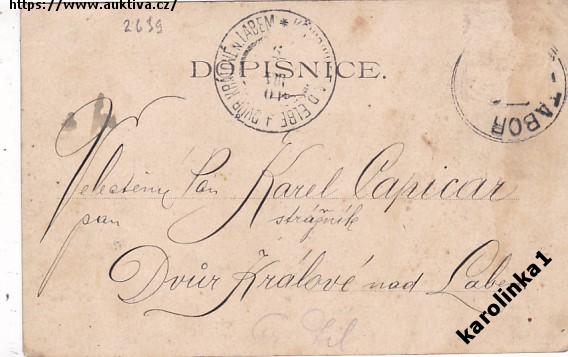 https://www.auktiva.cz/
2639
DOPISNICE.
DVŮR KRÁLOVÉ N. LABEM *
TABOR
Velectěný Pan Karel Capicar
pan strážník
Dvůr Králové nad Labe
karolinka1